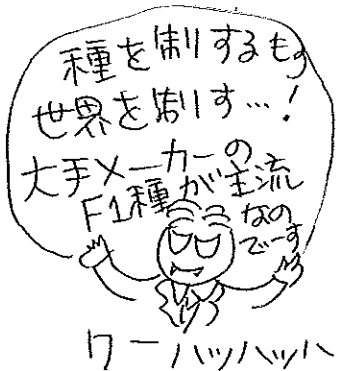 種を制するもの
世界を制す…!
大手メーカーの
F1種が主流
なの
でーす
ワーハッハッハ